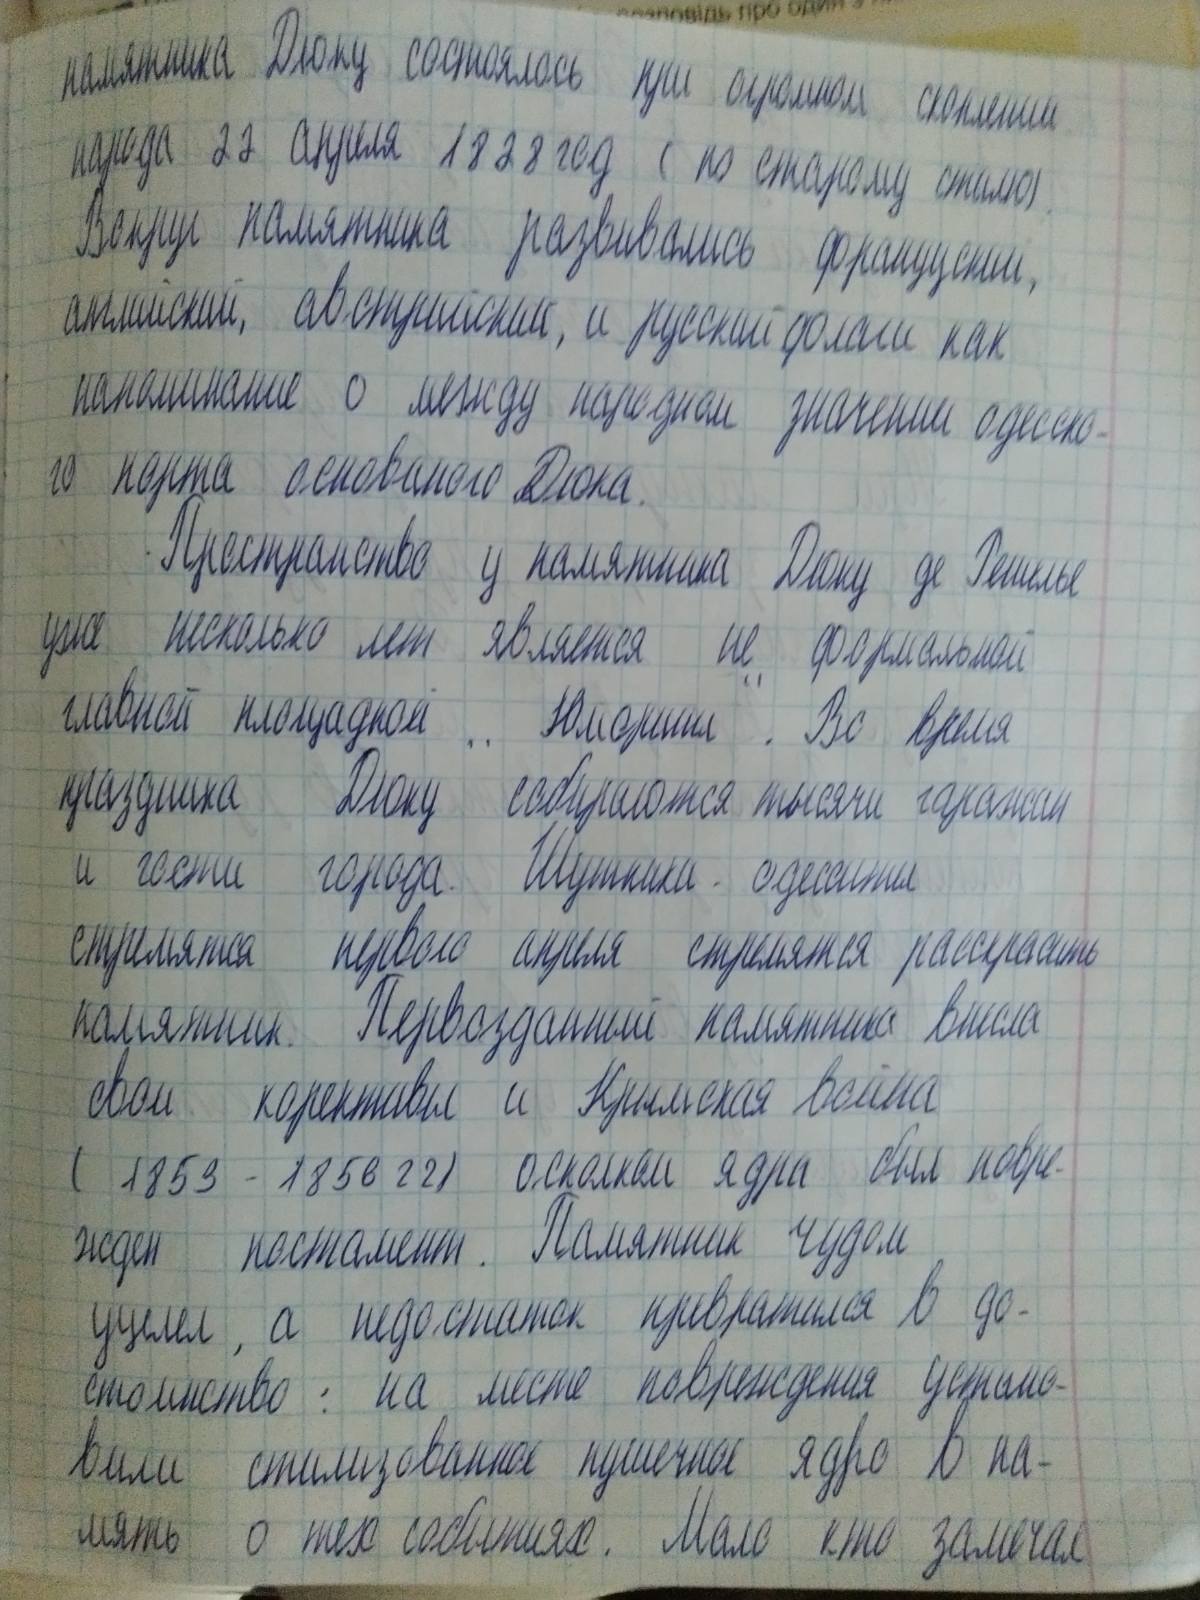 розповідь про один з
памятника Дюку состоялось при огромном скоплении
народа 22 апреля 1828 год ( по старому стилю).
Вокруг памятника развивались французский,
английский, австрийский, и русский флаги как
напоминание о между народном значении одесско-
го порта основаного Дюка.
Пространство у памятника Дюку де Решелье
уже несколько лет является не формальной
главной площадкой „ Юморины ". Во время
праздника Дюку собираются тысячи горажан
и гости города. Шутники - одесситы
стремятся первого апреля стремятся расскрасить
памятник. Первозданный памятника внесла
свои корективы и Крымская война
( 1853 - 1856 гг) осколком ядра был повре-
жден постамент. Памятник чудом
уцелел, а недостаток превратился в до-
стоинство : на месте повреждения устано-
вили стилизованное пушечное ядро в па-
мять о тех событиях. Мало кто замечал